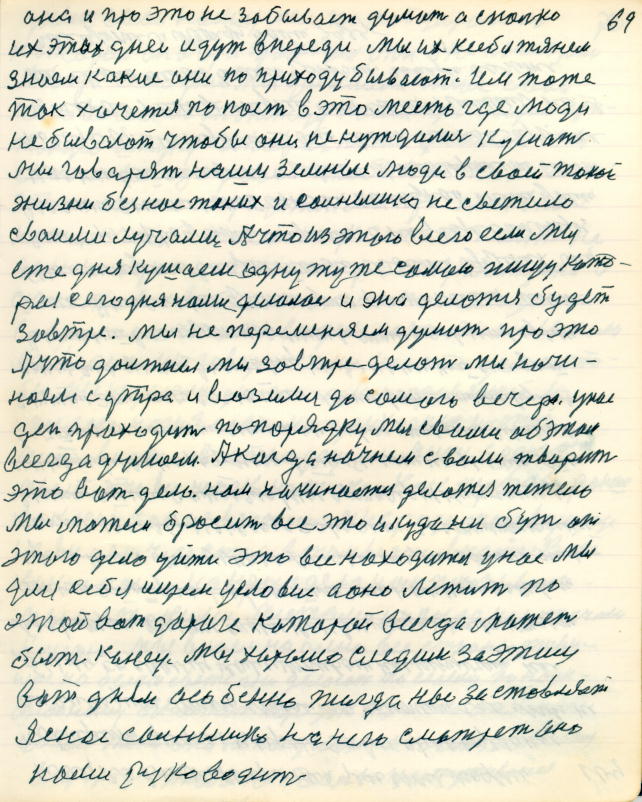 она и про это не забывает думат а сколко 69
их этих днеи идут впереди мы их к себе тянем
знаем какие они по приходу бывают. Им тоже
так хочется попаст в это место где люди
небывают чтобы они не нуждалися кушат.
мы говарят наши земные люди в своеи такои
жизни без нас таких и солнышко не светило
своими лучами. А что из этого всего если мы
дня кушаем одну и туже самою пищу кото-
рая сегодня нами делалас и она делатся будет
завтре. мы не переменяем думат про это
А что должны мы завтре делат мы начи-
наем с утра и возимся до самого вечера. у нас
ден проходит по порядку мы с вами об этом
всегда думаем. А когда начнем с вами творит
это вот дело. нам начинается делатся тяжело
мы можем бросит все это и куда ни бут от
этого дела уити это все находится у нас мы
для себя ищем условие а оно летит по
этои вот дароге катораи всегда может
быт конец. мы харашо следим за этим
вот днем особенно тагда нас заставляет
ясное солнышко на него смотрет оно
нами руководит